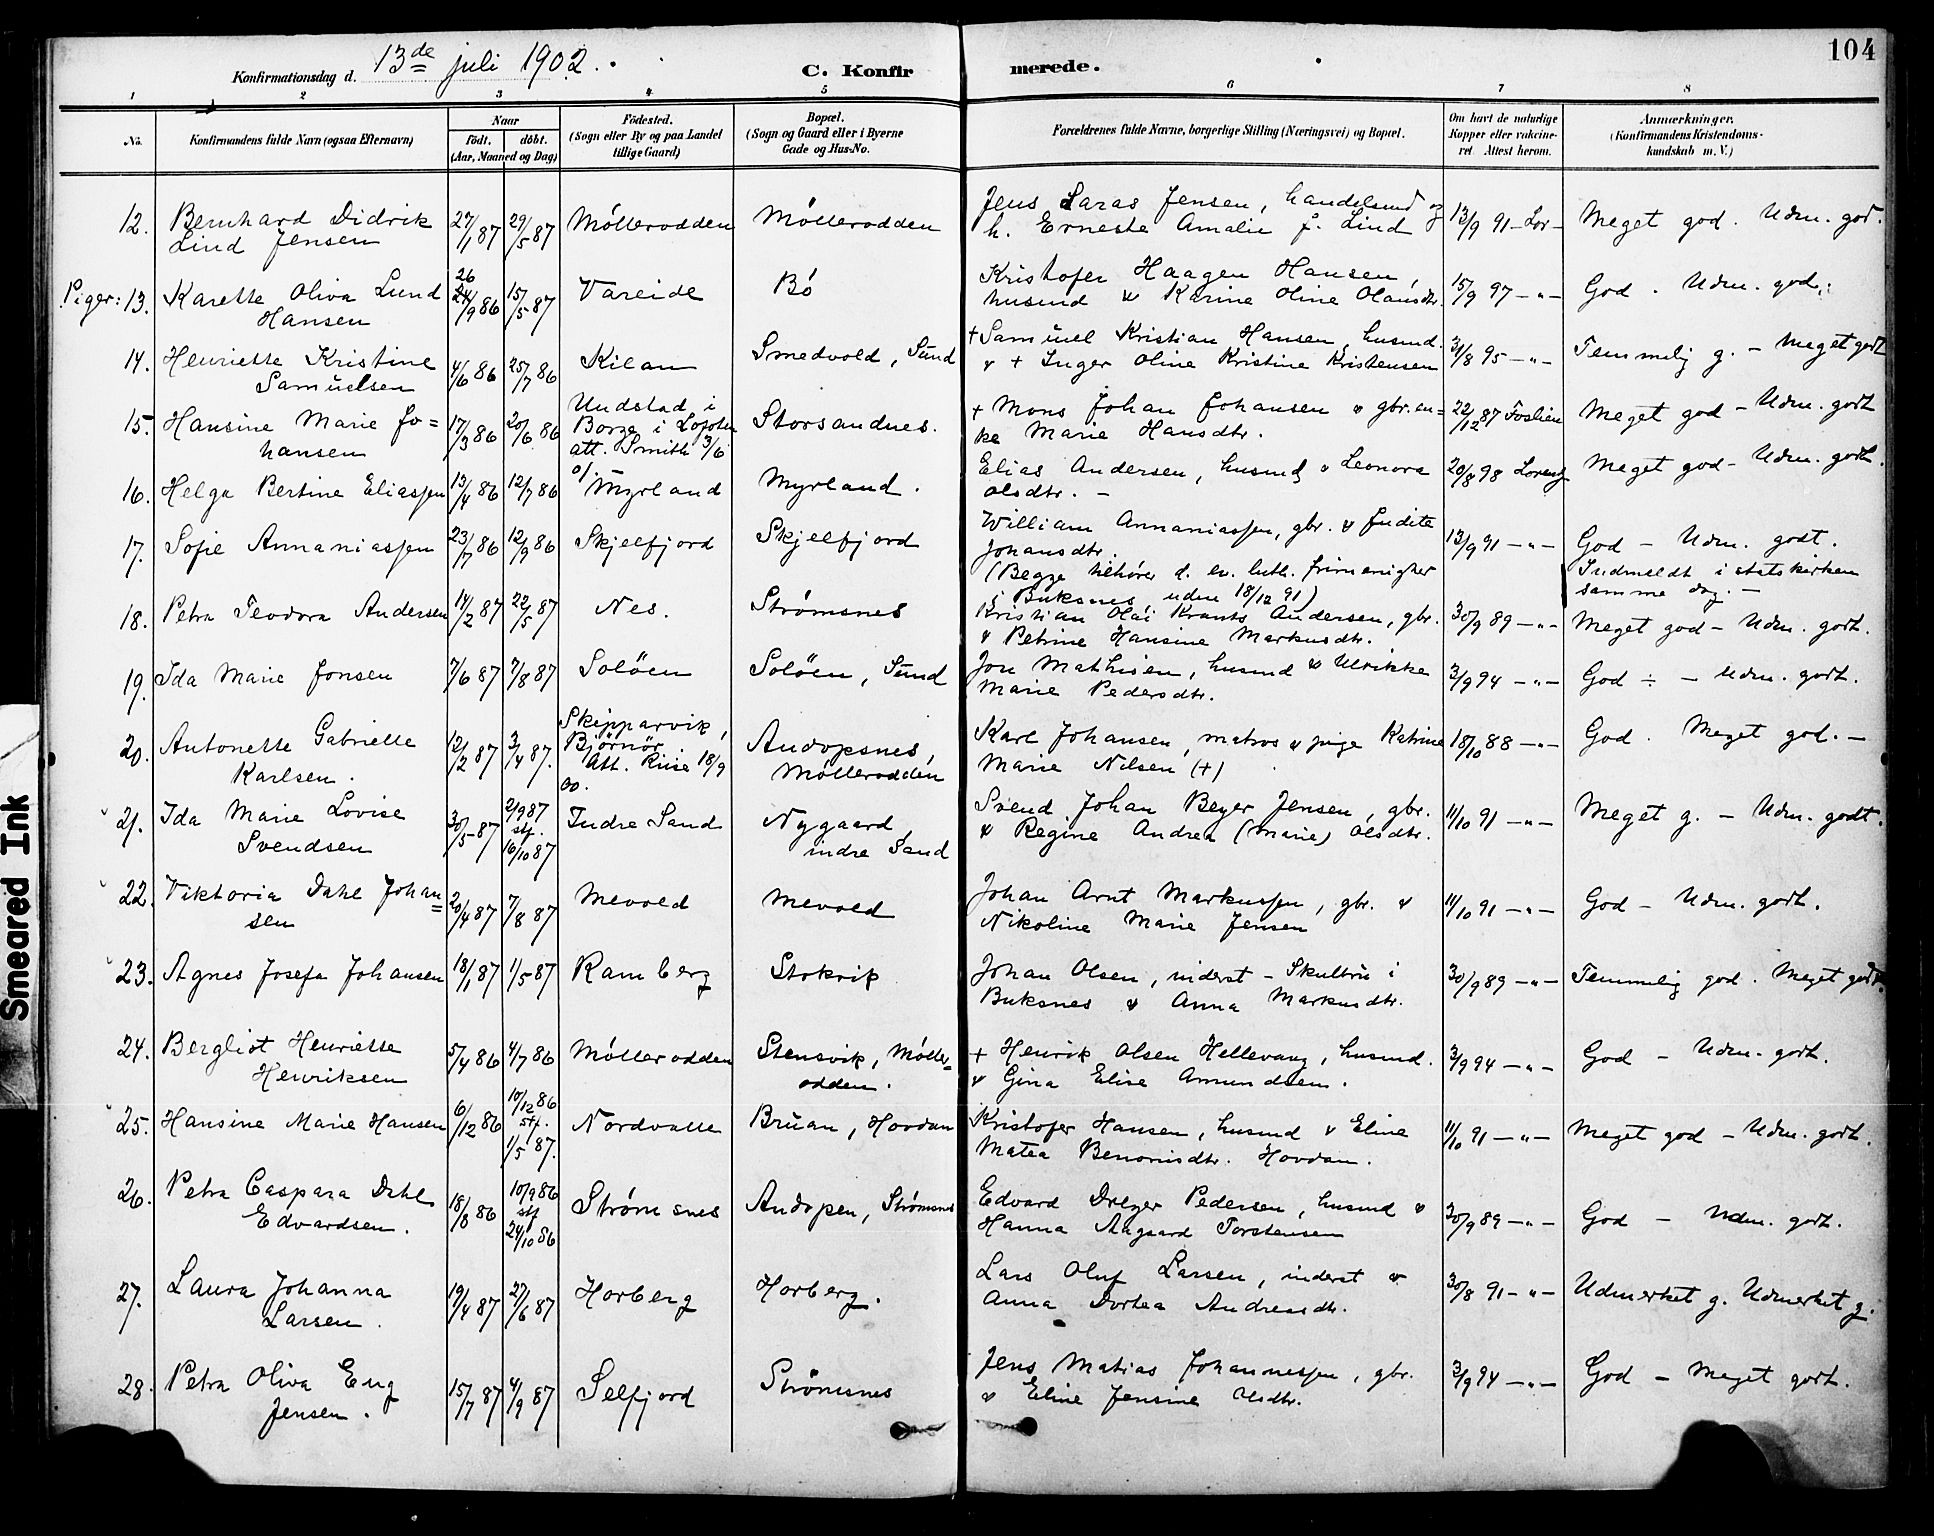 104
Konfirmationsdag d. 13de juli 1902. C. Konfirmerede.
1 2 3 4 5 6 7 8
No. Konfirmandens fulde Navn (ogsaa Efternavn) Naar födt. döbt. (Aar, Maaned og Dag) Födested. (Sogn eller By og paa Landet tillige Gaard) Bopæl. (Sogn og Gaard eller i Byerne Gade og Hus-No. Forældrenes fulde Navne, borgerlige Stilling (Næringsvei) og Bopæl. Om havt de naturlige Kopper eller vaccineret Attest herom. Anmærkninger. (Konfirmandens Kristendomskundskab m. V.)
12. Bernhard Didrik Lind Jensen 27/1 87 29/5 87 Möllerodden Möllerodden Jens Saras Jensen, handelsmd og h. Erneste Amalie f. Lind 13/9 91 – Lor – Meget god. Udm. god.
Piger: 13. Karette Oliva Lund Hansen 26/9 86 15/5 87 Vareide Bö Kristofer Haagen Hansen, husmd & Karine Oline Olausdtr. 15/9 97 –"– God. Udm. god.
14. Henriette Kristine Samuelsen 4/6 86 25/7 86 Kilan Smedvold, Sund + Samuel Kristian Hansen, husmd. & + Inger Oline Kristine Kristensen 31/8 95 –"– Temmelig g. – Meget godt
15. Hansine Marie Johansen 17/3 86 20/6 86 Undstad i Borge i Lofoten att. Smith 3/6 01. Storsandnes. + Mons Johan Johansen & gbr.enke Marie Hansdtr. 22/12 87 Foslien Meget god – Udm. godt
16. Helga Bertine Eliassen 13/4 86 12/7 86 Myrland Myrland. Elias Andersen, husmd & Leonora Olsdtr. – 20/8 98 Lorentz Meget god – Udm. godt.
17. Sofie Annaniassen 23/7 86 12/9 86 Skjelfjord Skjelfjord William Annaniassen, gbr. & Judite Johansdtr. (Begge tilhører d. ev. luth. frimenighet i Buksnes uden 18/12 91) 13/9 91 –"– God – Udm. godt. Indmeldt i statskirken samme dag. –
18. Petra Teodora Andersen 14/2 87 22/5 87 Nes. Strømsnes Kristian Olai Krants Andersen, gbr. & Petrine Hansine Markusdtr. 30/9 89 –"– Meget god – Udm. godt.
19. Ida Marie Jonsen 7/6 87 7/8 87 Solöen Solöen, Sund Jon Mathisen, husmd & Ulrikke Marie Pedersdtr. 3/9 94 –"– God ÷ – Udm. godt.
20. Antonette Gabrielle Karlsen. 12/2 87 3/4 87. Skipparvik, Björnör Att. Riise 18/9 00. Andopsnes, Möllerodden Karl Johansen, matros & pige Katrine Marie Nilsen (+) 18/10 88 –"– God. Meget god. –
21. Ida Marie Lovise Svendsen 30/5 87 2/9 87 stf. 16/10 87 Indre Sand Nygaard, indre Sand Svend Johan Beyer Jensen, gbr. & Regine Andrea (Marie) Olsdtr. 11/10 91 –"– Meget g. – Udm. godt.
22. Viktoria Dahl Johansen 20/4 87 7/8 87 Mevold Mevold Johan Arnt Markussen, gbr. & Nikoline Marie Jensen 11/10 91 –"– God – Udm. godt.
23. Agnes Josefa Johansen 18/1 87 1/5 87 Ramberg Stokvik Johan Olsen, inderst – Skultbru i Buksnes & Anna Markusdtr. 30/9 89 –"– Temmelig god. Meget godt.
24. Bergliot Henriette Henriksen 5/4 86 4/7 86 Möllerodden Stensvik, Möllerodden. + Henrik Olsen Hellevang, husmd. & Gina Elise Amundsen. 3/9 94 –"– God – Udm. godt.
25. Hansine Marie Hansen 6/12 86 10/12 86 stf. 1/5 87. Nordvalle Bruan, Hovdan Kristofer Hansen, husmd & Eline Matea Benonisdtr. Hovdan. 11/10 91 –"– Meget god – Udm. godt.
26. Petra Caspara Dahl Edvardsen. 18/8 86 10/9 86 stf 24/10 86 Strømsnes Andopen, Strømsnes Edvard Dreyer Pedersen, husmd & Hanna Aagaard Torstensen 30/9 89 –"– God – Udm. godt.
27. Laura Johanna Larsen. 19/4 87 27/6 87 Horberg Horberg. Lars Oluf Larsen, inderst & Anna Dortea Andreasdtr. 30/8 91 –"– Udmerket g. Udmerket g.
28. Petra Oliva Eng Jensen. 15/7 87 4/9 87 Selfjord Strømsnes Jens Matias Johannessen, gbr. & Eline Jensine Olsdtr. 3/9 94 –"– God – Meget godt.
Smeared Ink